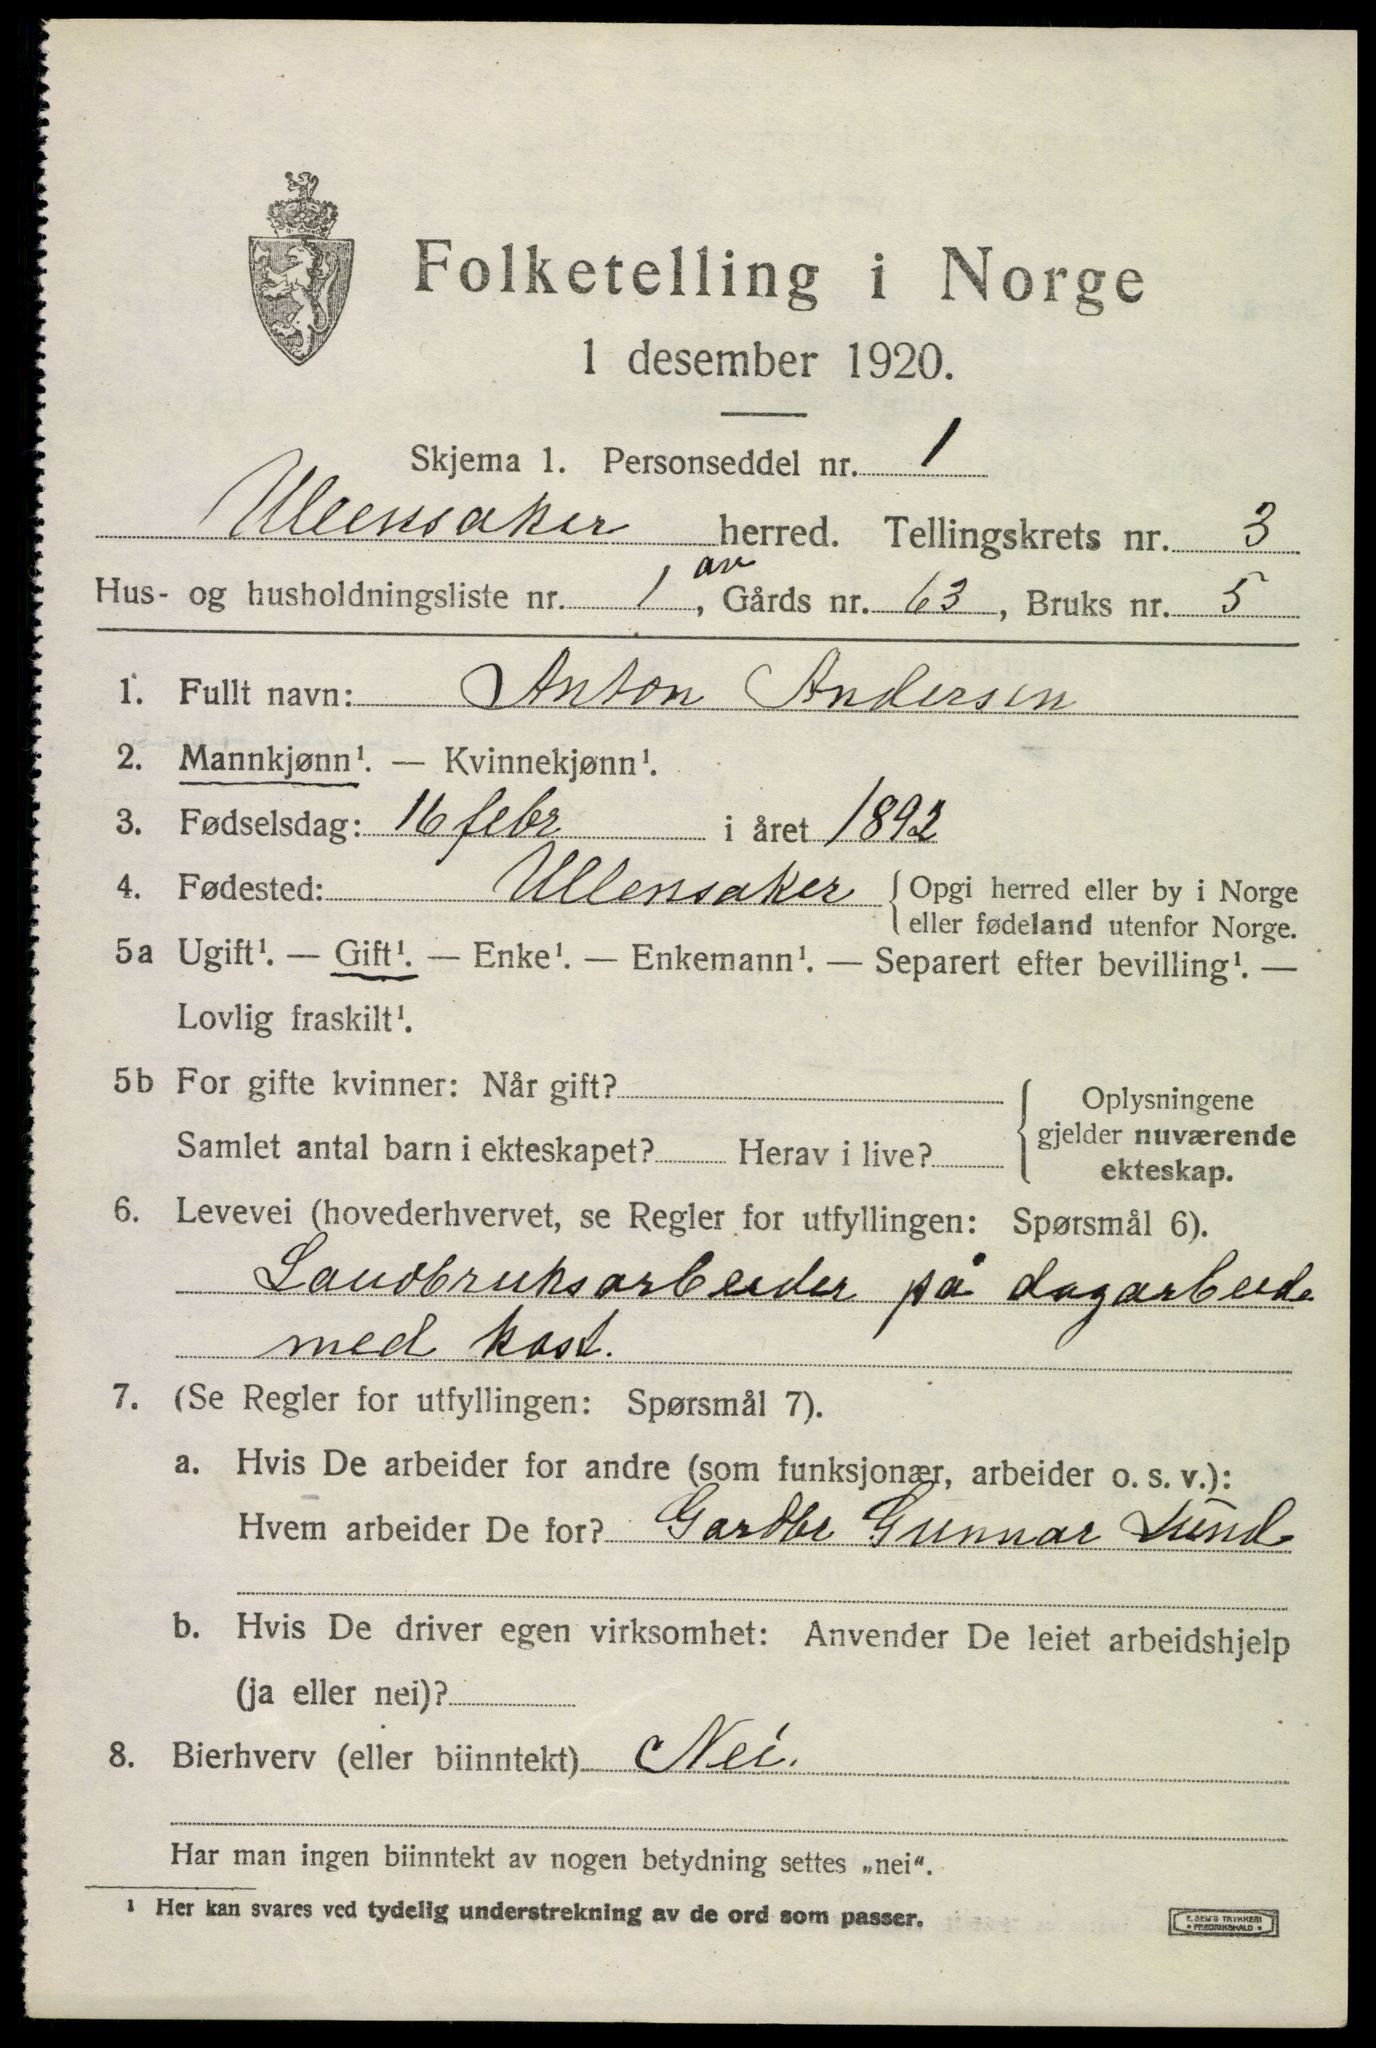 Folketelling i Norge
1 desember 1920.
Skjema 1. Personseddel nr. 1
Ullensaker herred. Tellingskrets nr. 3
Hus- og husholdningsliste nr. 1, Gårds nr. 63, Bruks nr. 5
1. Fullt navn: Anton Andersen
2. Mannkjønn¹. — Kvinnekjønn¹.
3. Fødselsdag: 16 febr i året 1892
4. Fødested: Ullensaker { Opgi herred eller by i Norge
eller fødeland utenfor Norge.
5a Ugift¹. — Gift¹. — Enke¹. — Enkemann¹. — Separert efter bevilling¹. —
Lovlig fraskilt¹.
5b For gifte kvinner: Når gift?
Samlet antal barn i ekteskapet? Herav i live?
Oplysningene
gjelder nuværende
ekteskap.
6. Levevei (hovederhvervet, se Regler for utfyllingen: Spørsmål 6).
Landbruksarbeider på dagarbeide
med kost.
7. (Se Regler for utfyllingen: Spørsmål 7).
a. Hvis De arbeider for andre (som funksjonær, arbeider o. s. v.):
Hvem arbeider De for? Gardbr Gunnar Lund
b. Hvis De driver egen virksomhet: Anvender De leiet arbeidshjelp
(ja eller nei)?
8. Bierhverv (eller biinntekt) Nei.
Har man ingen biinntekt av nogen betydning settes „nei“.
¹ Her kan svares ved tydelig understrekning av de ord som passer.
E. SEM'S TRYKKERI
• FREDRIKSHALD •